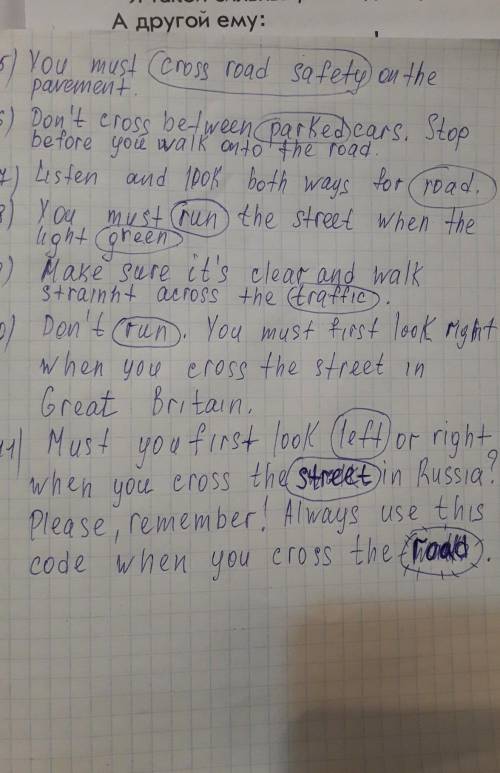 А другой ему:
5) You must cross road safety on the
pavement.
6) Don't cross between parked cars. Stop
before you walk onto the road.
7) Listen and look both ways for road.
8) You must run the street when the
light green
9) Make sure it's clear and walk
strainht across the traffic.
0) Don't run. You must first look right
when you cross the street in
Great Britain.
11) Must you first look left or right
when you cross the street in Russia?
Please, remember! Always use this
code when you cross the road.